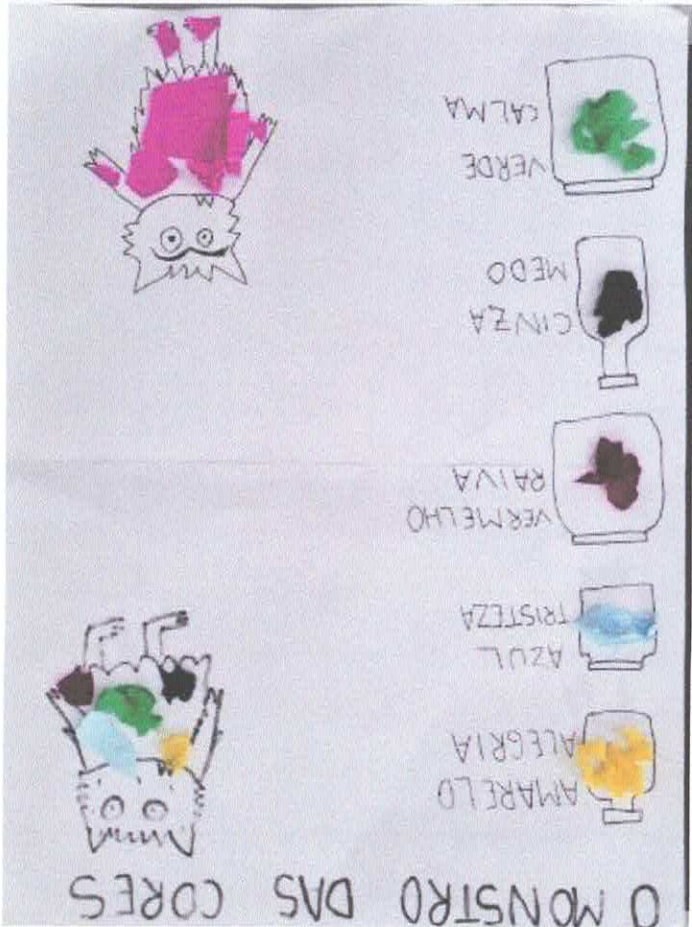 O MONSTRO DAS CORES
AMARELO
ALEGRIA
AZUL
TRISTEZA
VERMELHO
RAIVA
CINZA
MEDO
VERDE
CALMA